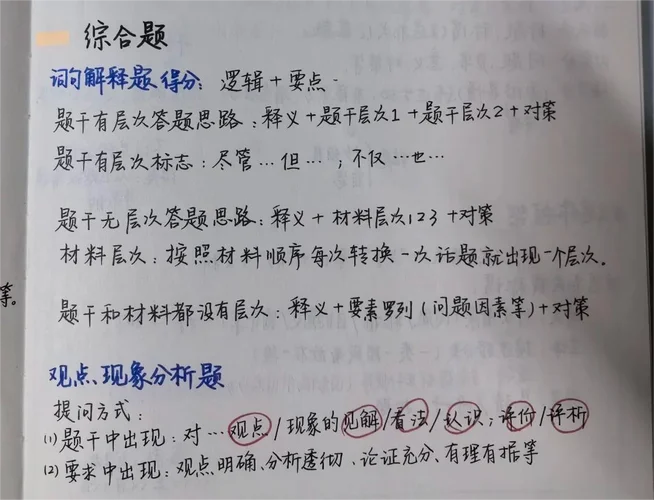 综合题
词句解释题得分：逻辑+要点.
题干有层次答题思路：释义+题干层次1+题干层次2+对策
题干有层次标志：尽管…但…；不仅…也…
题干无层次答题思路：释义+材料层次123+对策
材料层次：按照材料顺序每次转换一次话题就出现一个层次。
等。
题干和材料都没有层次：释义+要素罗列(问题因素等)+对策
观点、现象分析题
提问方式：
(1)题干中出现：对…观点/现象的见解/看法/认识；评价/评析
(2)要求中出现：观点明确、分析透彻、论证充分、有理有据等